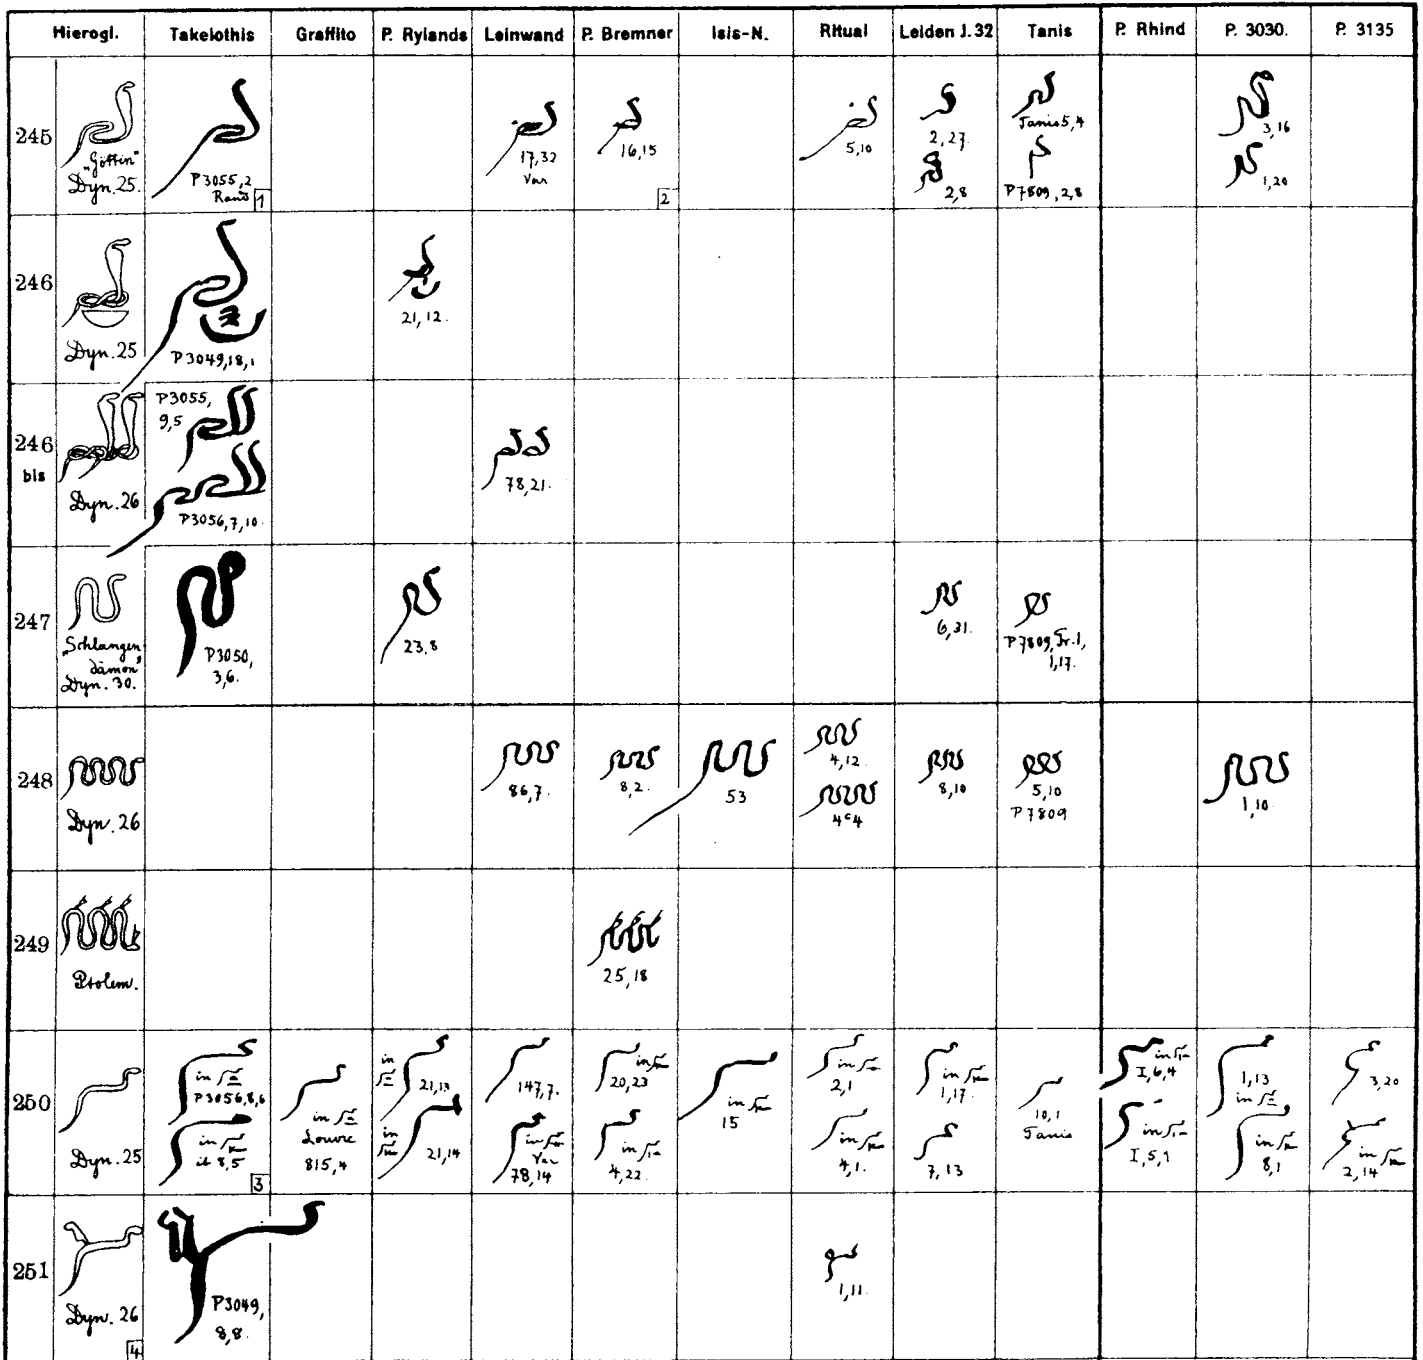 Hierogl. Takelothis Graffito P. Rylands Leinwand P. Bremner Isis-N. Ritual Leiden J. 32 Tanis P. Rhind P. 3030. P. 3135
245
„Göttin"
Dyn. 25.
P3055,2
Rand
1
17,32
Var
16,15
2
5,10
2,27.
2,8
Tanis 5,4
P7809,2,8
3,16
1,20
246
Dyn. 25
P3049,18,1
21,12.
246
bis
Dyn. 26
P3055,
9,5
P3056,7,10.
78,21.
247
„Schlangen
dämon"
Dyn. 30.
P3050,
3,6.
23,8
6,31.
P7809, Fr. 1,
1,17.
248
Dyn. 26
86,7.
8,2.
53
4,12.
4ᶜ4
8,10
5,10
P7809
1,10.
249
Ptolem.
25,18
250
Dyn. 25
in
P3056,8,6
in
ib 8,5
3
in
Louvre
815,4
in
21,13
in
21,14
147,7.
in
Var
78,14
in
20,23
in
4,22.
in
15
in
2,1
in
4,1.
in
1,17.
7,13
10,1
Tanis
in
I,6,4
in
I,5,1
1,13
in
in
8,1
3,20
in
2,14
251
Dyn. 26
4
P3049,
8,8.
1,11.